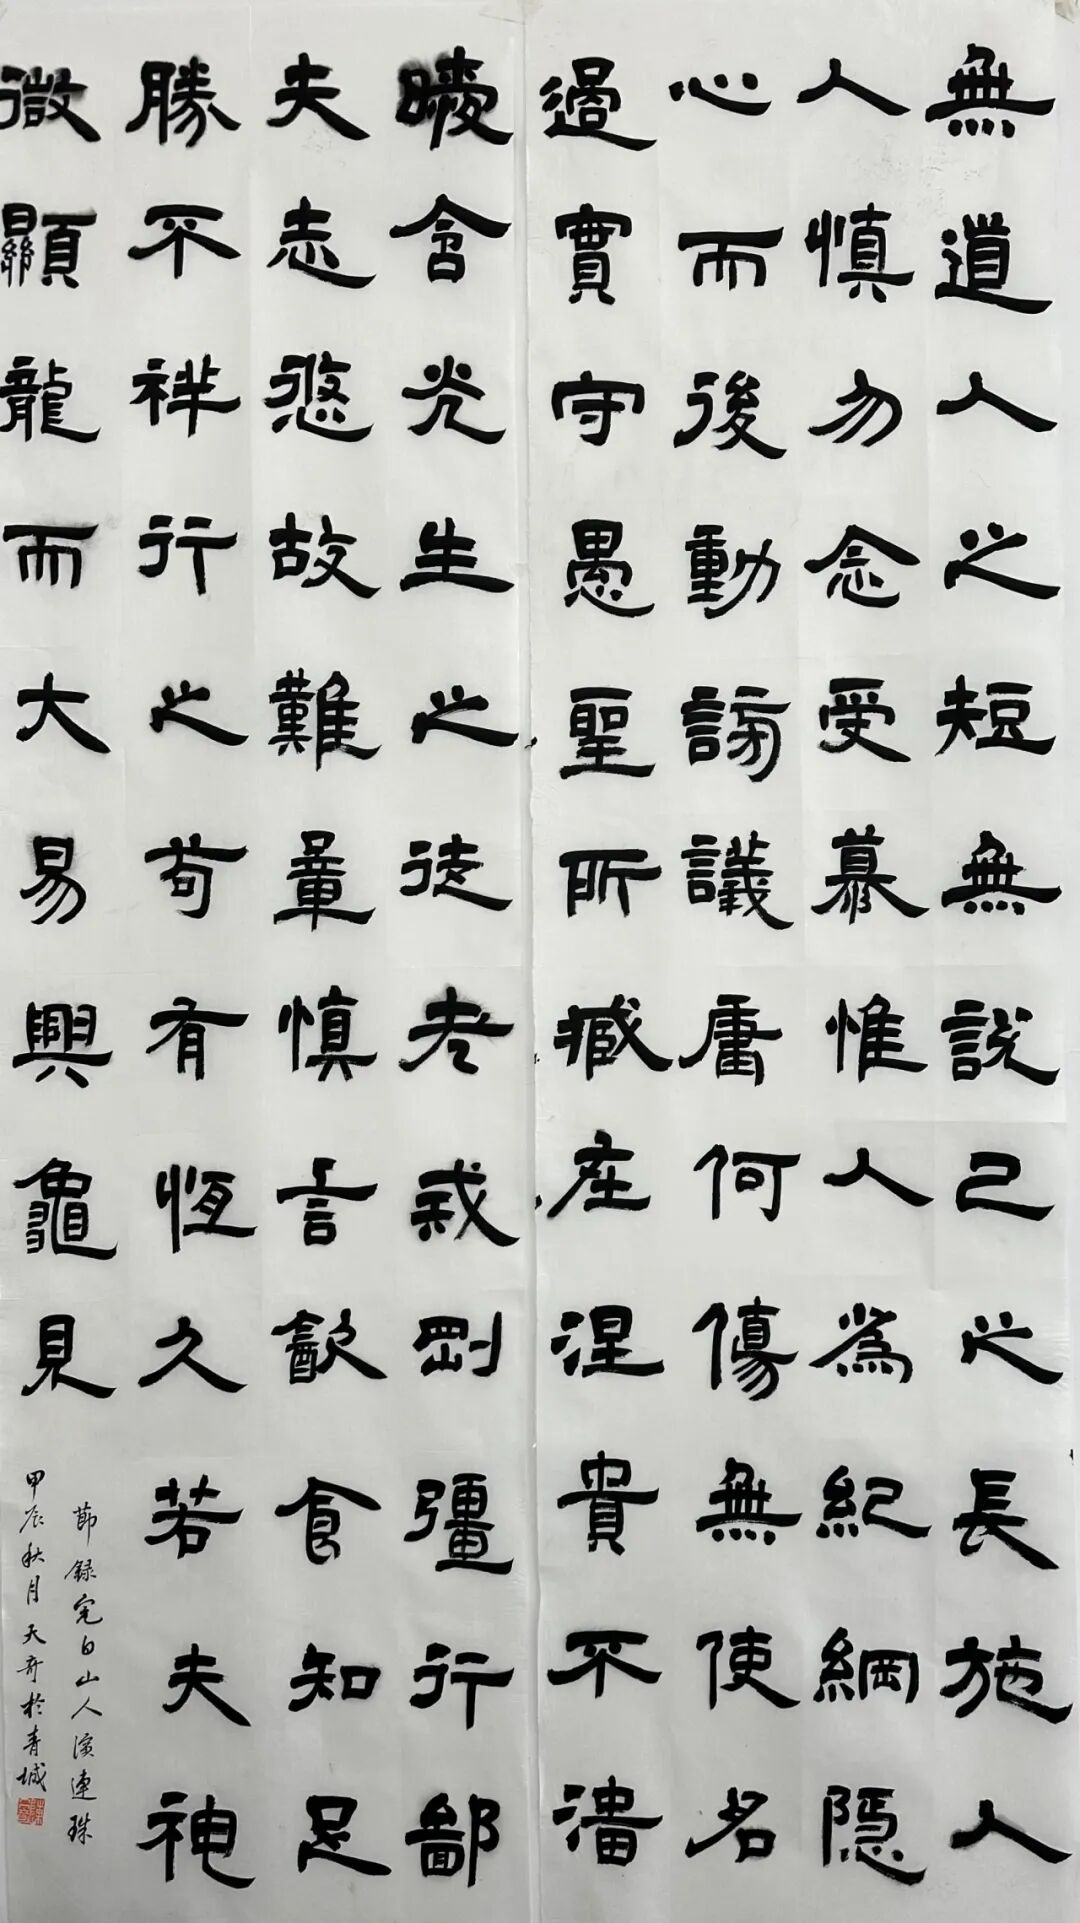 無道人之短無說己之長施人
人慎勿念受慕惟人為紀綱隐
心而後動謗議庸何傷無使名
過實守愚聖所臧在涅貴不淄
曖含光生之徒老戒剛彊行鄙
夫志悠故難量慎言飲食知足
勝不祥行之苟有恆久若夫神
微顯龍而大易興龜見
節録完白山人演連珠
甲辰秋月天奇於青城